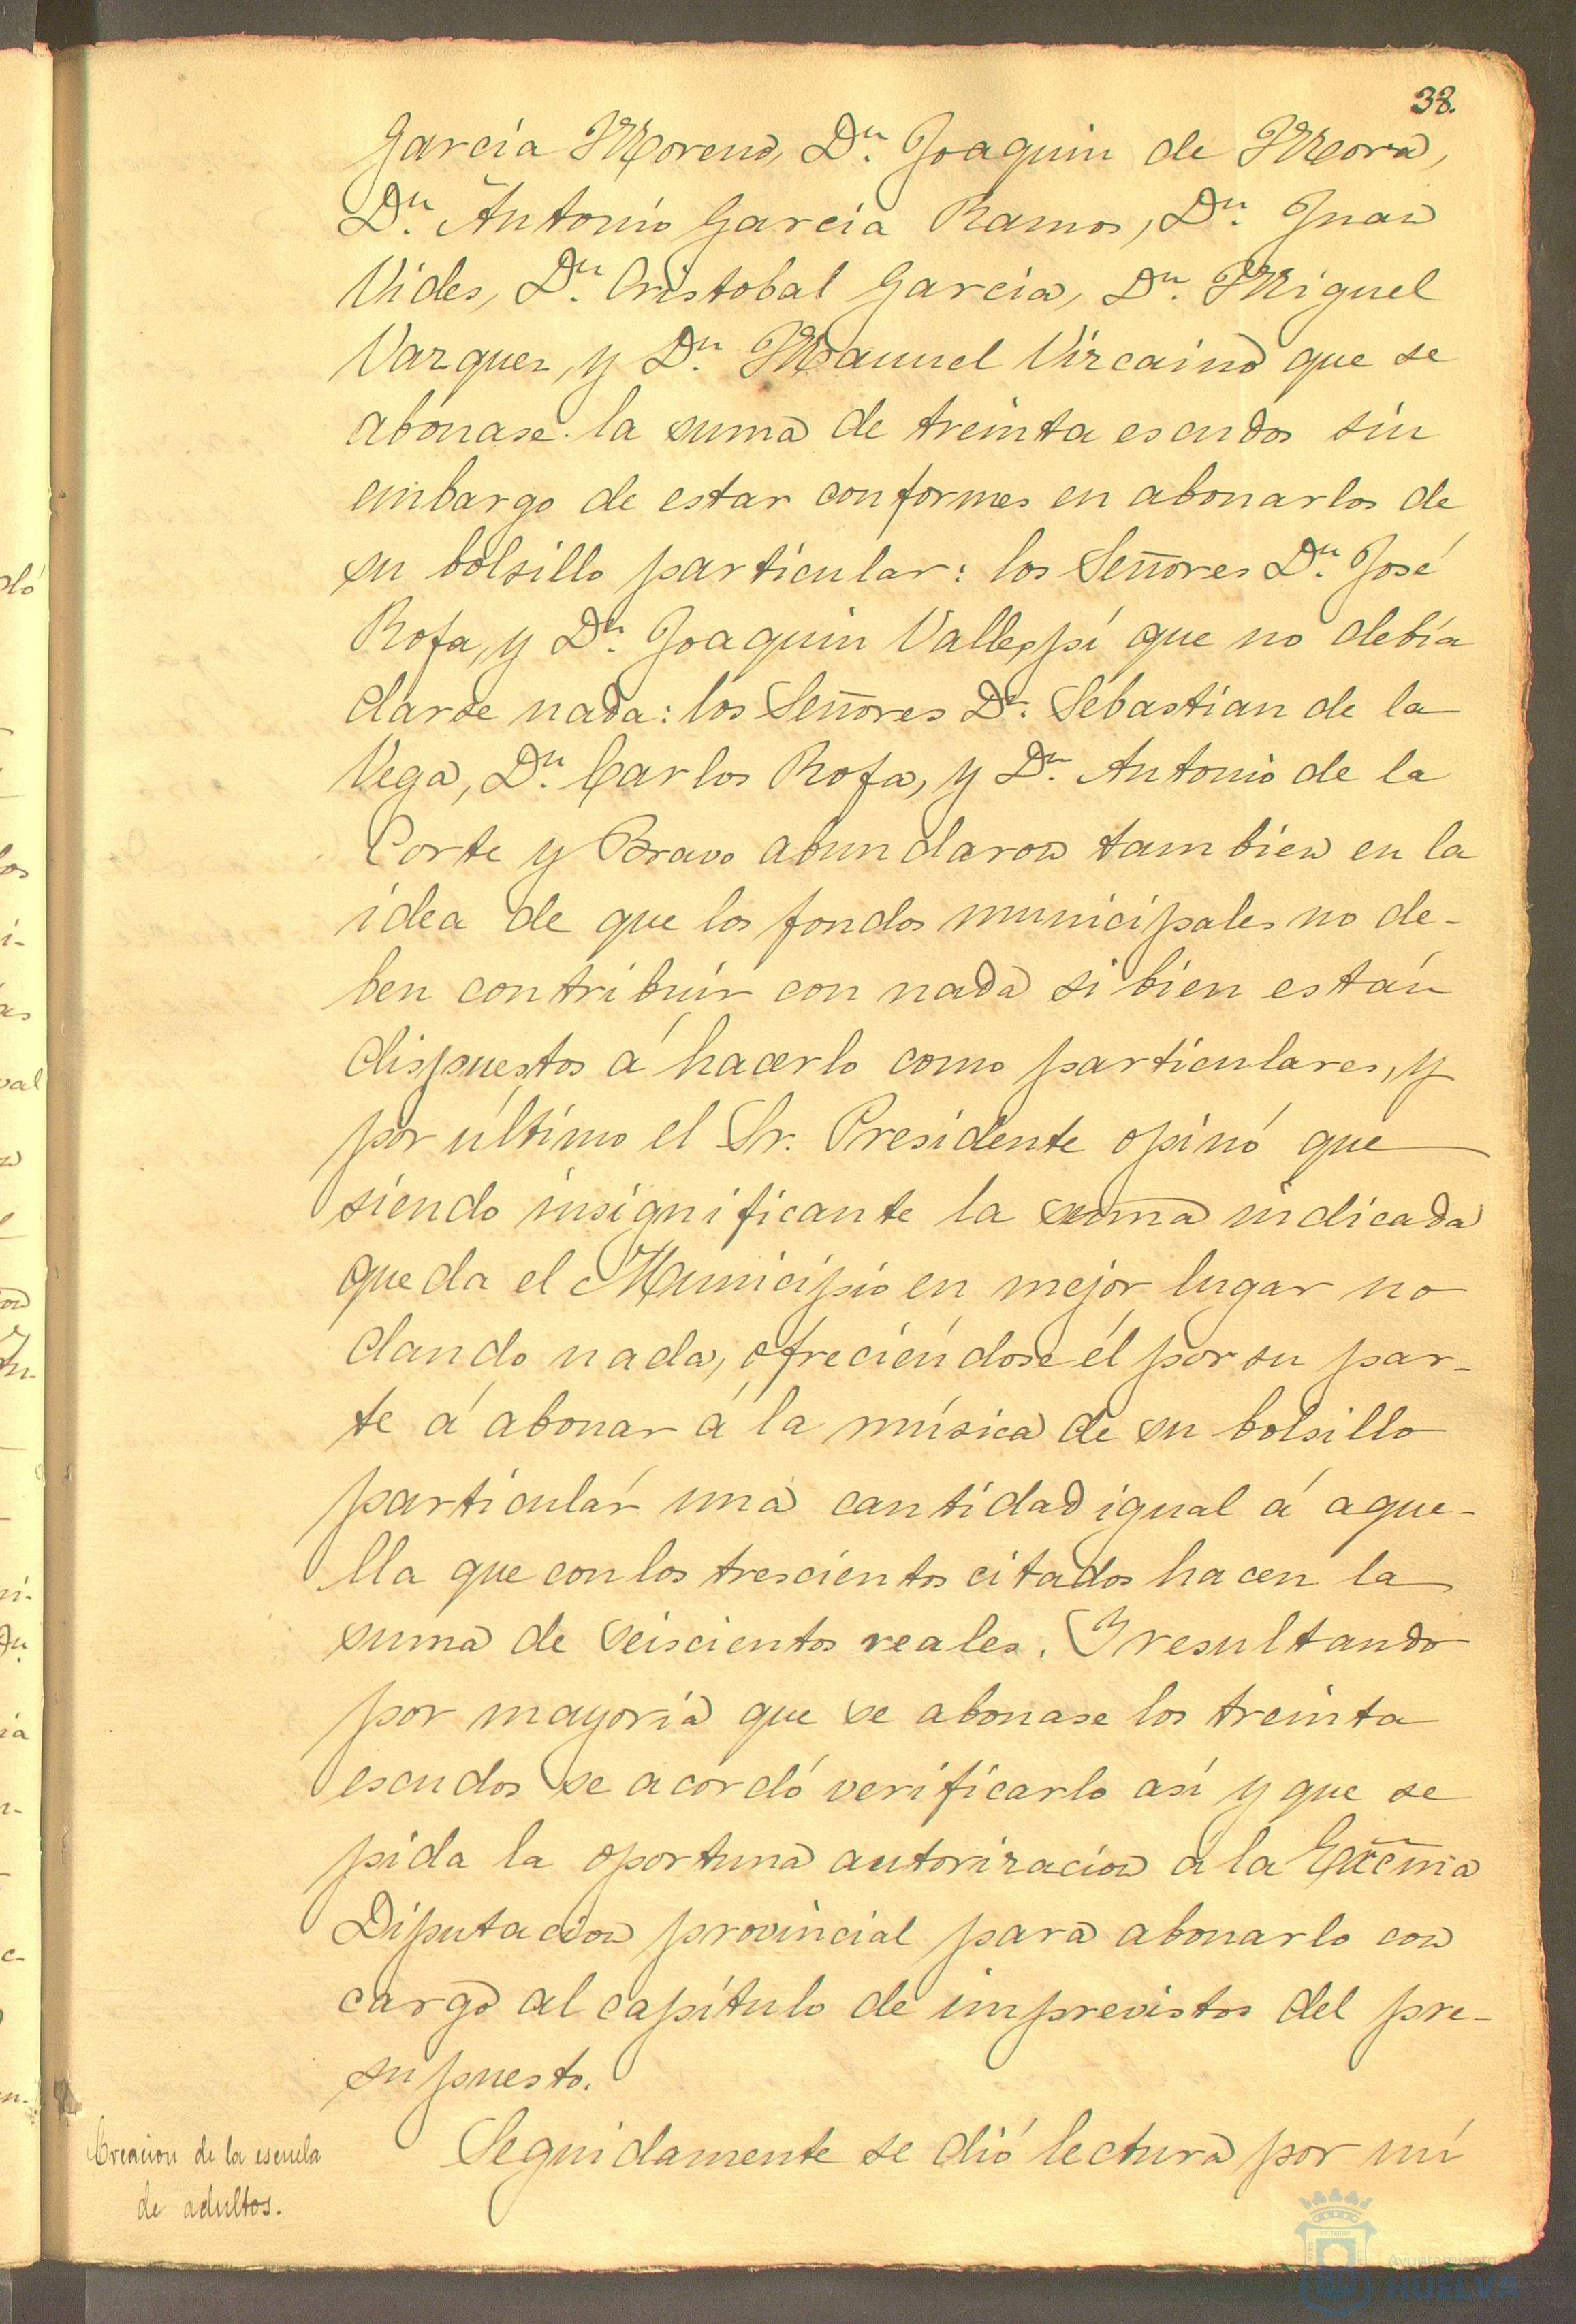 38.
García Moreno, Dn. Joaquin de Mora,
Dn. Antonio García Ramos, Dn. Juan
Vides, Dn. Cristobal García, Dn. Miguel
Vazquez, y Dn. Manuel Vizcaino que se
abonase la suma de treinta escudos sin
embargo de estar conformes en abonarlos de
su bolsillo particular: los Señores Dn. José
Rofa, y Dn. Joaquin Vallespí que no debía
darse nada: los Señores Dn. Sebastian de la
Vega, Dn. Carlos Rofa, y Dn. Antonio de la
Corte y Bravo abundaron tambien en la
idea de que los fondos municipales no de-
ben contribuir con nada si bien están
dispuestos á hacerlo como particulares, y
por último el Sr. Presidente opinó que
siendo insignificante la suma indicada
queda el Municipio en mejor lugar no
dando nada, ofreciéndose él por su par-
te á abonar á la música de su bolsillo
particular una cantidad igual á aque-
lla que con los trescientos citados hacen la
suma de seiscientos reales. Y resultando
por mayoría que se abonase los treinta
escudos se acordó verificarlo así y que se
pida la oportuna autorizacion á la Excma
Diputacion provincial para abonarlo con
cargo al capítulo de imprevistos del pre-
supuesto.
Creacion de la escuela
de adultos.
Seguidamente se dió lectura por mí
Ayuntamiento
HUELVA